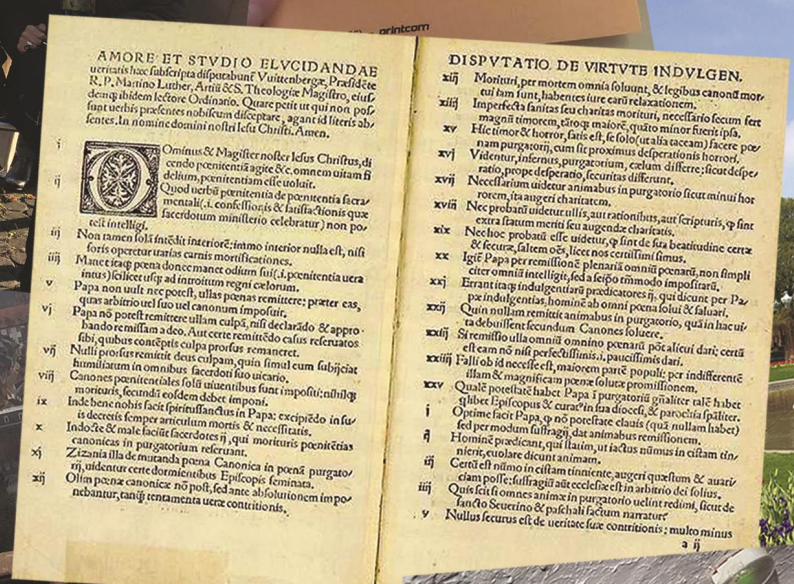 printcom
AMORE ET STVDIO ELVCIDANDAE
ueritatis hæc subscripta disputabunt Vuittenbergæ, Præsidēte
R. P. Martino Luther, Artiū & S. Theologiæ Magistro, eius-
demq; ibidem lectore Ordinario. Quare petit ut qui non pos-
sunt uerbis præsentes nobiscum disceptare, agant id literis ab-
sentes. In nomine domini nostri Iesu Christi. Amen.
i DOminus & Magister noster Iesus Christus, di
cendo pœnitentiā agite &c. omnem uitam fi
delium, pœnitentiam esse uoluit.
ij Quod uerbū pœnitentia de pœnitentia sacra
mentali(.i. confessionis & satisfactionis quæ
sacerdotum ministerio celebratur) non po-
test intelligi.
iij Non tamen solā intēdit interiorē: immo interior nulla est, nisi
foris operetur uarias carnis mortificationes.
iiij Manet itaq; pœna donec manet odium sui(.i. pœnitentia uera
intus) scilicet usq; ad introitum regni cælorum.
v Papa non uult nec potest, ullas pœnas remittere: præter eas,
quas arbitrio uel suo uel canonum imposuit.
vj Papa nō potest remittere ullam culpā, nisi declarādo & appro-
bando remissam a deo. Aut certe remittēdo casus reseruatos
sibi, quibus contēptis culpa prorsus remaneret.
vij Nulli prorsus remittit deus culpam, quin simul eum subijciat
humiliatum in omnibus sacerdoti suo uicario.
viij Canones pœnitentiales solū uiuentibus sunt impositi: nihilq;
morituris, secundū eosdem debet imponi.
ix Inde bene nobis facit spiritussanctus in Papa: excipiēdo in su-
is decretis semper articulum mortis & necessitatis.
x Indocte & male faciūt sacerdotes ij, qui morituris pœnitētias
canonicas in purgatorium reseruant.
xj Zizania illa de mutanda pœna Canonica in pœnā purgato-
rij, uidentur certe dormientibus Episcopis seminata.
xij Olim pœnæ canonicæ nō post, sed ante absolutionem impo-
nebantur, tanq̄ tentamenta ueræ contritionis.
DISPVTATIO DE VIRTVTE INDVLGEN.
xiij Morituri, per mortem omnia soluunt, & legibus canonū mor-
tui iam sunt, habentes iure earū relaxationem.
xiiij Imperfecta sanitas seu charitas morituri, necessario secum fert
magnū timorem, tātoq; maiorē, quāto minor fuerit ipsa.
xv Hic timor & horror, satis est, se solo (ut alia taceam) facere pœ-
nam purgatorij, cum sit proximus desperationis horrori.
xvj Videntur, infernus, purgatorium, cælum differre; sicut despe-
ratio, prope desperatio, securitas differunt.
xvij Necessarium uidetur animabus in purgatorio sicut minui hor
rorem, ita augeri charitatem.
xviij Nec probatū uidetur ullis, aut rationibus, aut scripturis, q̄ sint
extra statum meriti seu augendæ charitatis.
xix Nec hoc probatū esse uidetur, q̄ sint de sua beatitudine certæ
& securæ, saltem oēs, licet nos certissimi simus.
xx Igit̄ Papa per remissionē plenariā omniū pœnarū, non simpli
citer omniū intelligit, sed a seipso tm̄modo impositarū.
xxj Errant itaq; indulgentiarū prædicatores ij, qui dicunt per Pa-
pæ indulgentias, hominē ab omni pœna solui & saluari.
xxij Quin nullam remittit animabus in purgatorio, quā in hac ui-
ta debuissent secundum Canones soluere.
xxiij Si remissio ulla omniū omnino pœnarū pōt alicui dari; certū
est eam nō nisi perfectissimis .i. paucissimis dari.
xxiiij Falli ob id necesse est, maiorem partē populi: per indifferentē
illam & magnificam pœnæ solutæ promissionem.
xxv Qualē potestatē habet Papa ī purgatoriū gn̄aliter talē habet
q̄libet Episcopus & curat⁹ in sua diocesi, & parochia sp̄aliter.
i Optime facit Papa, q̄ nō potestate clauis (quā nullam habet)
sed per modum suffragij, dat animabus remissionem.
ij Hominē prædicant, qui statim, ut iactus nūmus in cistam tin-
nierit, euolare dicunt animam.
iij Certū est nūmo in cistam tinniente, augeri quæstum & auari-
ciam posse: suffragiū aūt ecclesiæ est in arbitrio dei solius.
iiij Quis scit si omnes animæ in purgatorio uelint redimi, sicut de
sancto Seuerino & paschali factum narratur.
v Nullus securus est de ueritate suæ contritionis; multo minus
a ij